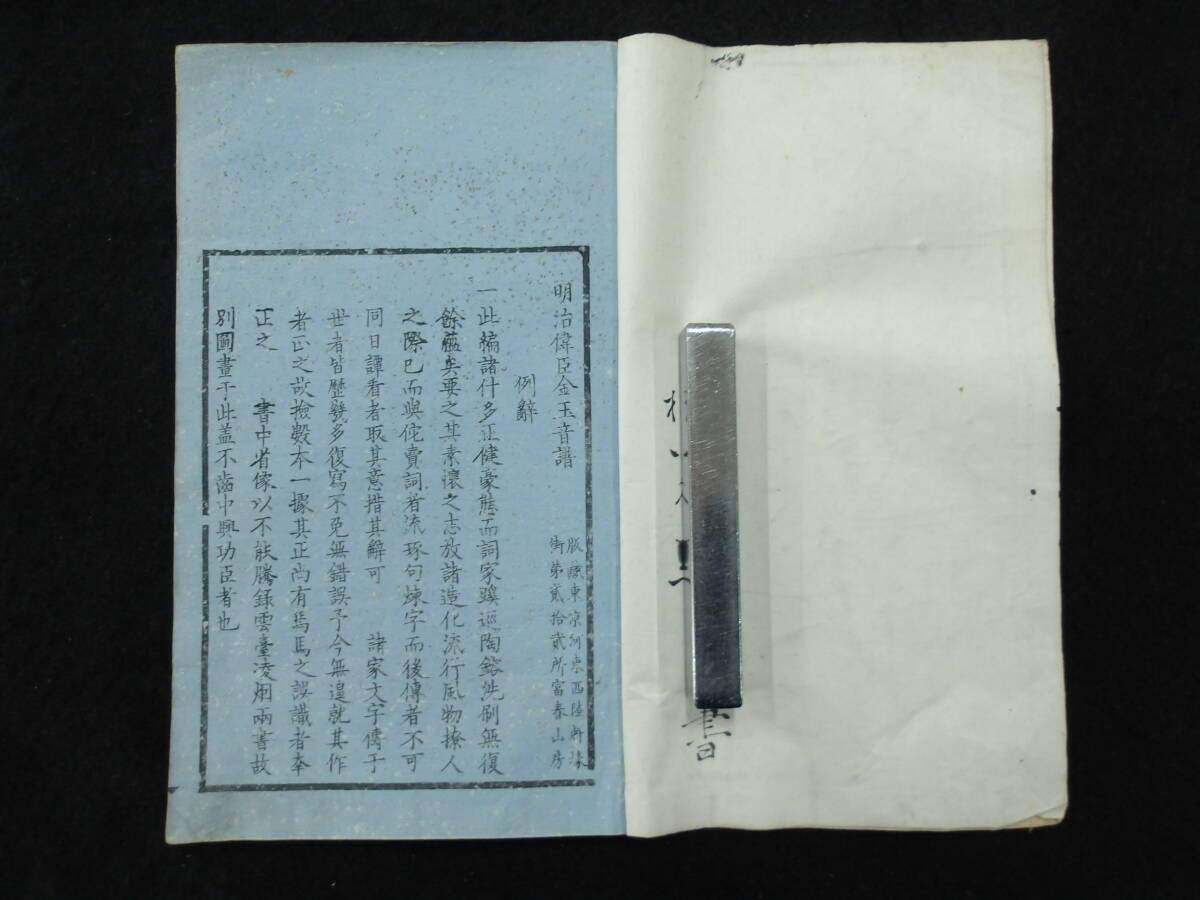 明治偉臣金玉音譜
版藏東京河東西陸軒塲
街第貳拾貳所富春山房
例辭
一此編諸什多正健豪能而詞家蹊巡陶鎔洗刷無復
餘蘊矣要之其素懷之志放諸造化流行風物撩人
之際已而與侘賣詞者流琢句煉字而後傳者不可
同日譚看者取其意措其辭可　諸家文字傳于
世者皆歷發多復寫不免無錯誤予今無遑就其作
者正之故撿數本一據其正尚有焉馬之誤識者幸
正之　書中省像以不能騰錄雲臺凌烟兩書故
別圖畫于此盖不齒中興功臣者也
書